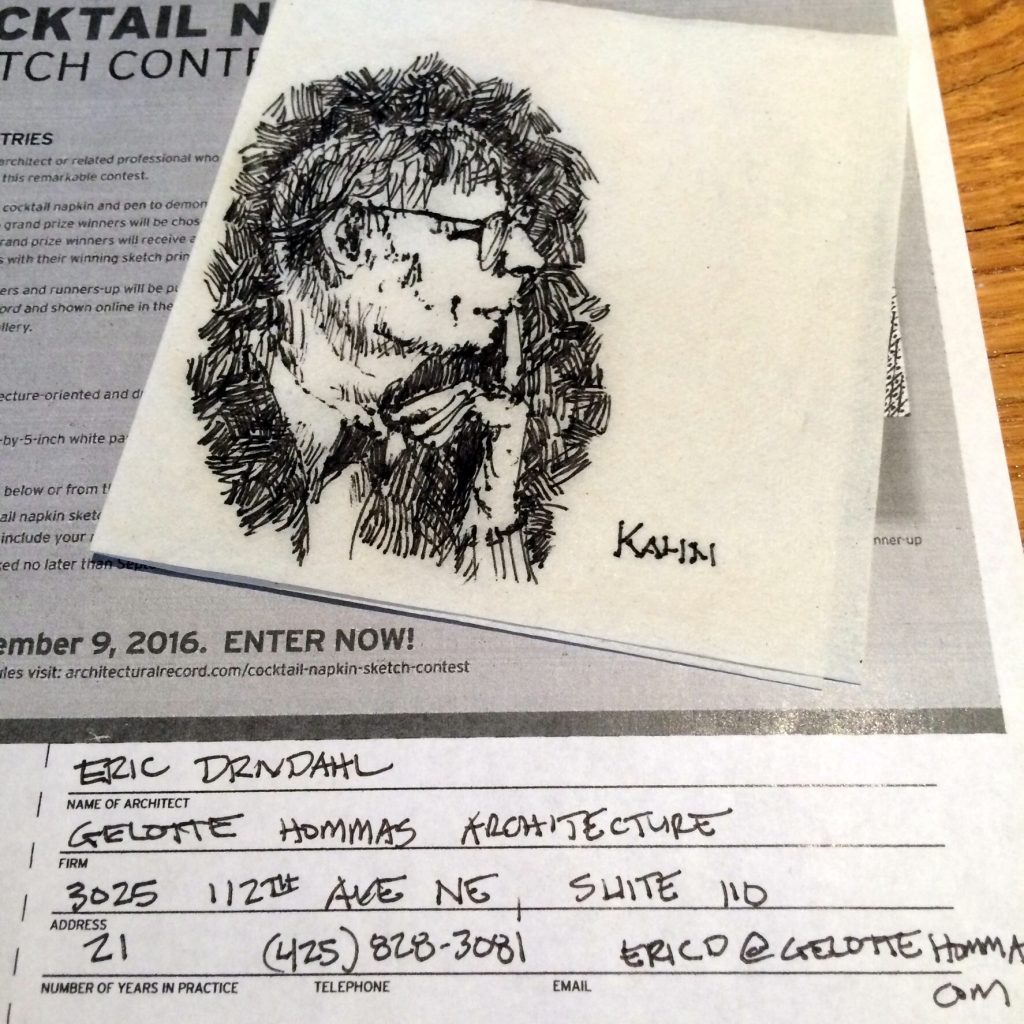 CKTAIL N
TCH CONT
TRIES
architect or related professional who
this remarkable contest.
cocktail napkin and pen to demon
grand prize winners will be chos
rand prize winners will receive a
s with their winning sketch prin
ers and runners-up will be pu
ord and shown online in the
llery.
ecture-oriented and d
-by-5-inch white pa
below or from t
ail napkin sket
include your
ked no later than Sept
KAHN
nner-up
ember 9, 2016. ENTER NOW!
ules visit: architecturalrecord.com/cocktail-napkin-sketch-contest
ERIC DRNDAHL
NAME OF ARCHITECT
GELOTTE HOMMAS ARCHITECTURE
FIRM
3025 112TH AVE NE, SUITE 110
ADDRESS
21 (425) 828-3081 ERICD@GELOTTEHOMMA
COM
NUMBER OF YEARS IN PRACTICE TELEPHONE EMAIL